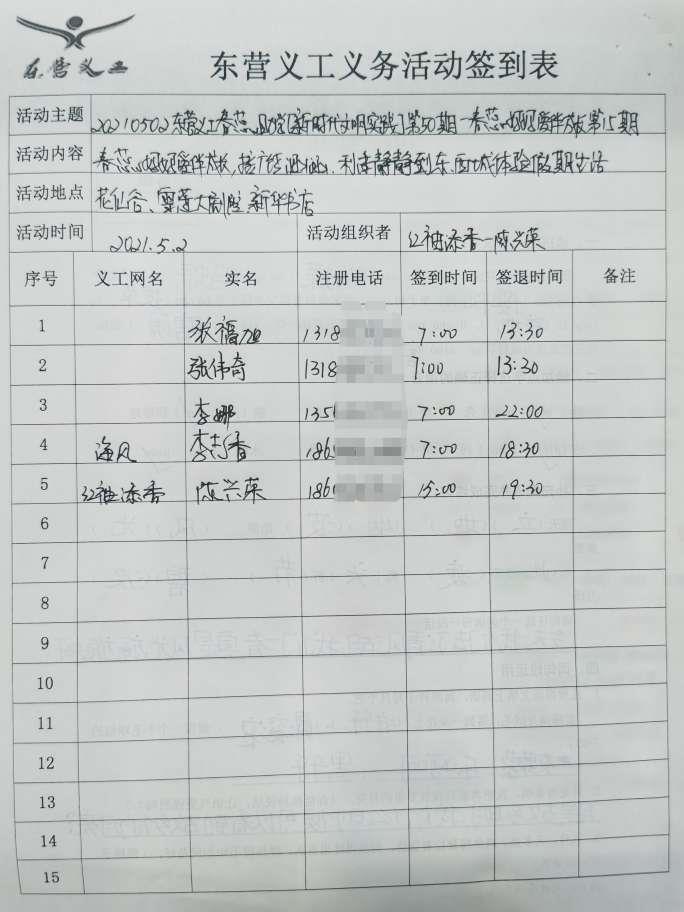 东营义工
东营义工义务活动签到表
活动主题 20210502东营义工春蕊 [新时代文明实践]第50期-春蕊 妈妈陪伴成长第15期
活动内容 春蕊 妈妈陪伴成长, 静静到东 西城体验假期生活
活动地点 花仙谷、雪莲大剧院 新华书店
活动时间 2021.5.2 活动组织者 红袖添香-陈兴荣
序号 义工网名 实名 注册电话 签到时间 签退时间 备注
1 张福旭 1318 7:00 13:30
2 张伟奇 1318 7:00 13:30
3 李娜 135 7:00 22:00
4 海风 李 香 186 7:00 18:30
5 红袖添香 陈兴荣 186 15:00 19:30
6
7
8
9
10
11
12
13
14
15